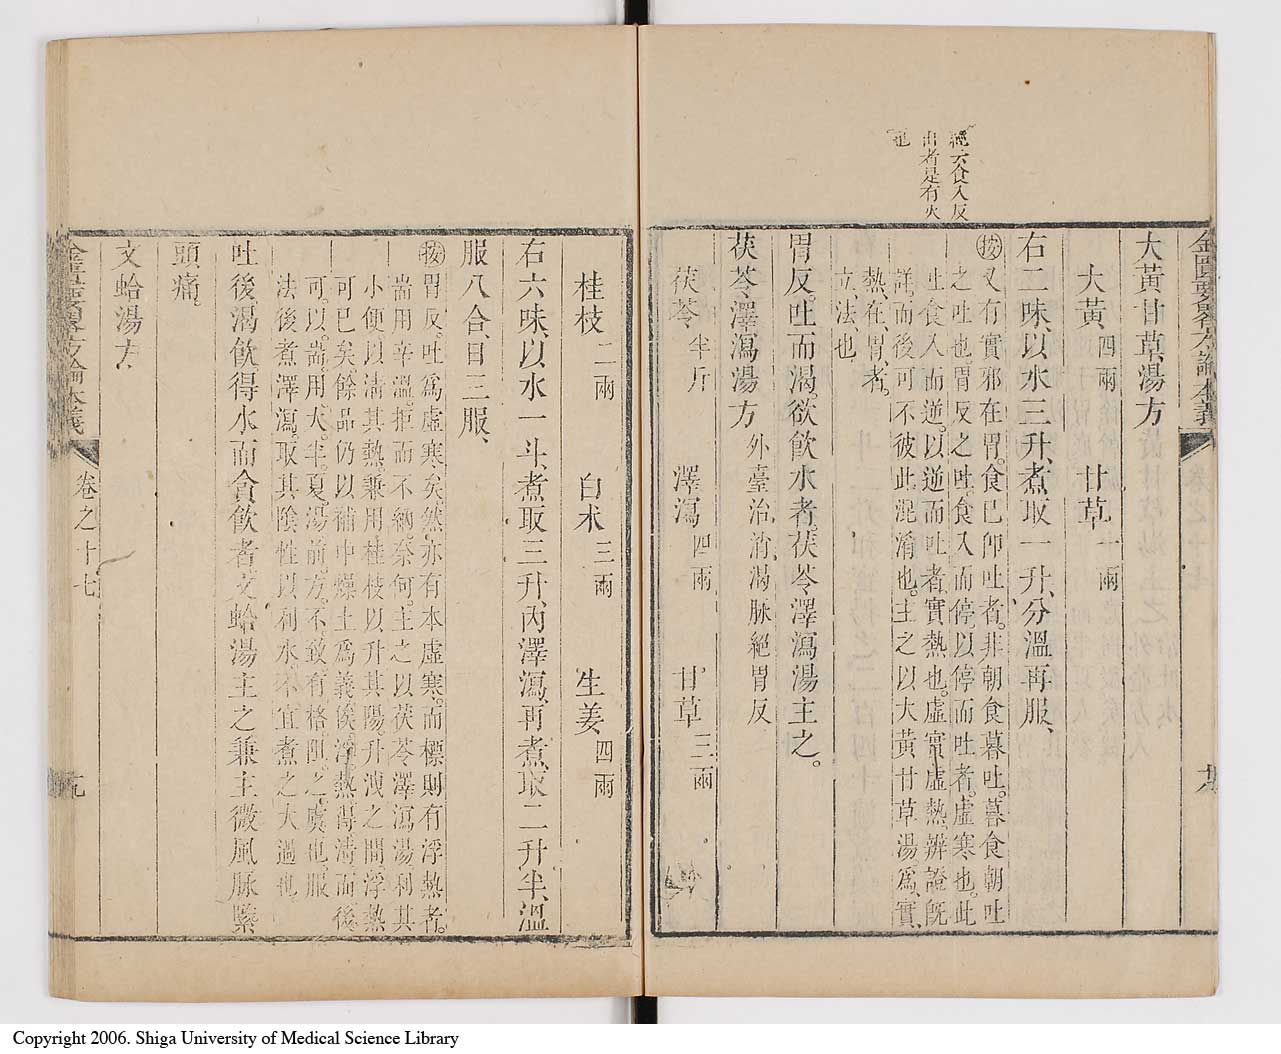 金匱要畧方論本義
大黃甘草湯方
大黃四兩 甘草一兩
右二味、以水三升、煮取一升、分溫再服、
按又有實邪在胃。食已卽吐者。非朝食暮吐。暮食朝吐
之吐也。胃反之吐。食入而停。以停而吐者。虛寒也。此
吐食入而逆。以逆而吐者。實熱也。虛實虛熱。辨證旣
詳。而後可不彼此混淆也。主之以大黃甘草湯。爲實、
熱、在、胃、者、
立、法、也
經云食入反
出者是有火
也
胃反。吐而渴。欲飮水者。茯苓澤瀉湯主之。
茯苓澤瀉湯方 外臺治消渴脉絕胃反
茯苓半斤 澤瀉四兩 甘草二兩
桂枝二兩 白朮三兩 生姜四兩
右六味、以水一斗、煮取三升、內澤瀉、再煮、取二升半、溫
服八合、日三服、
按胃反。吐爲虛寒矣。然亦有本虛寒。而標則有浮熱者。
耑用辛溫。拒而不納。奈何。主之以茯苓澤瀉湯。利其
小便以淸其熱。兼用桂枝以升其陽。升洩之間。浮熱
可已矣。餘品仍以補中燥土爲義。俟浮熱得淸。而後
可以耑用大半夏湯前方。不致有格阻之虞也。服
法後煮澤瀉。取其陰性以利水。不宜煮之太過也。
吐後。渴飮得水而貪飮者。文蛤湯主之。兼主微風脉緊
頭痛。
文蛤湯方
金匱要畧方論本義
卷之十七
Copyright 2006. Shiga University of Medical Science Library